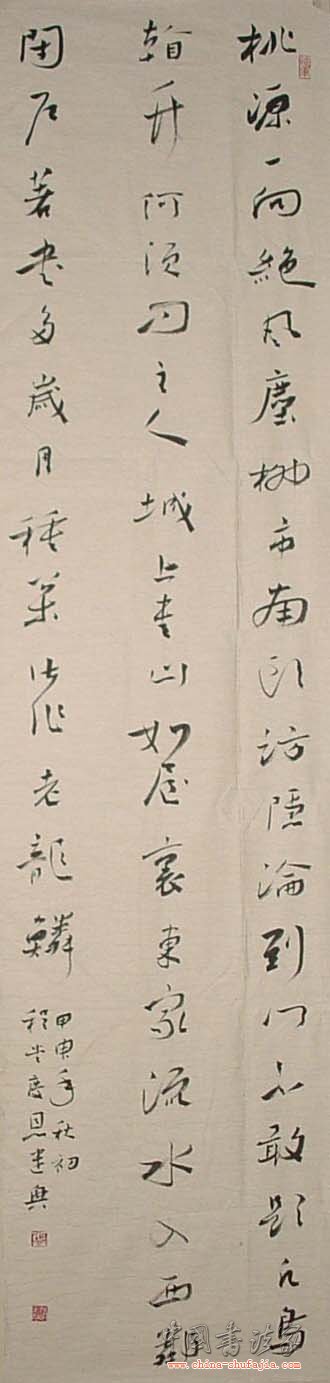 桃源一向絶風塵柳市南頭訪隱淪到門不敢題凡鳥
看竹何須問主人城上青山如屋裏東家流水入西鄰
閉户著書多歲月種松皆作老龍鱗
甲申年秋初
中国書法家
www.china-shufajia.com